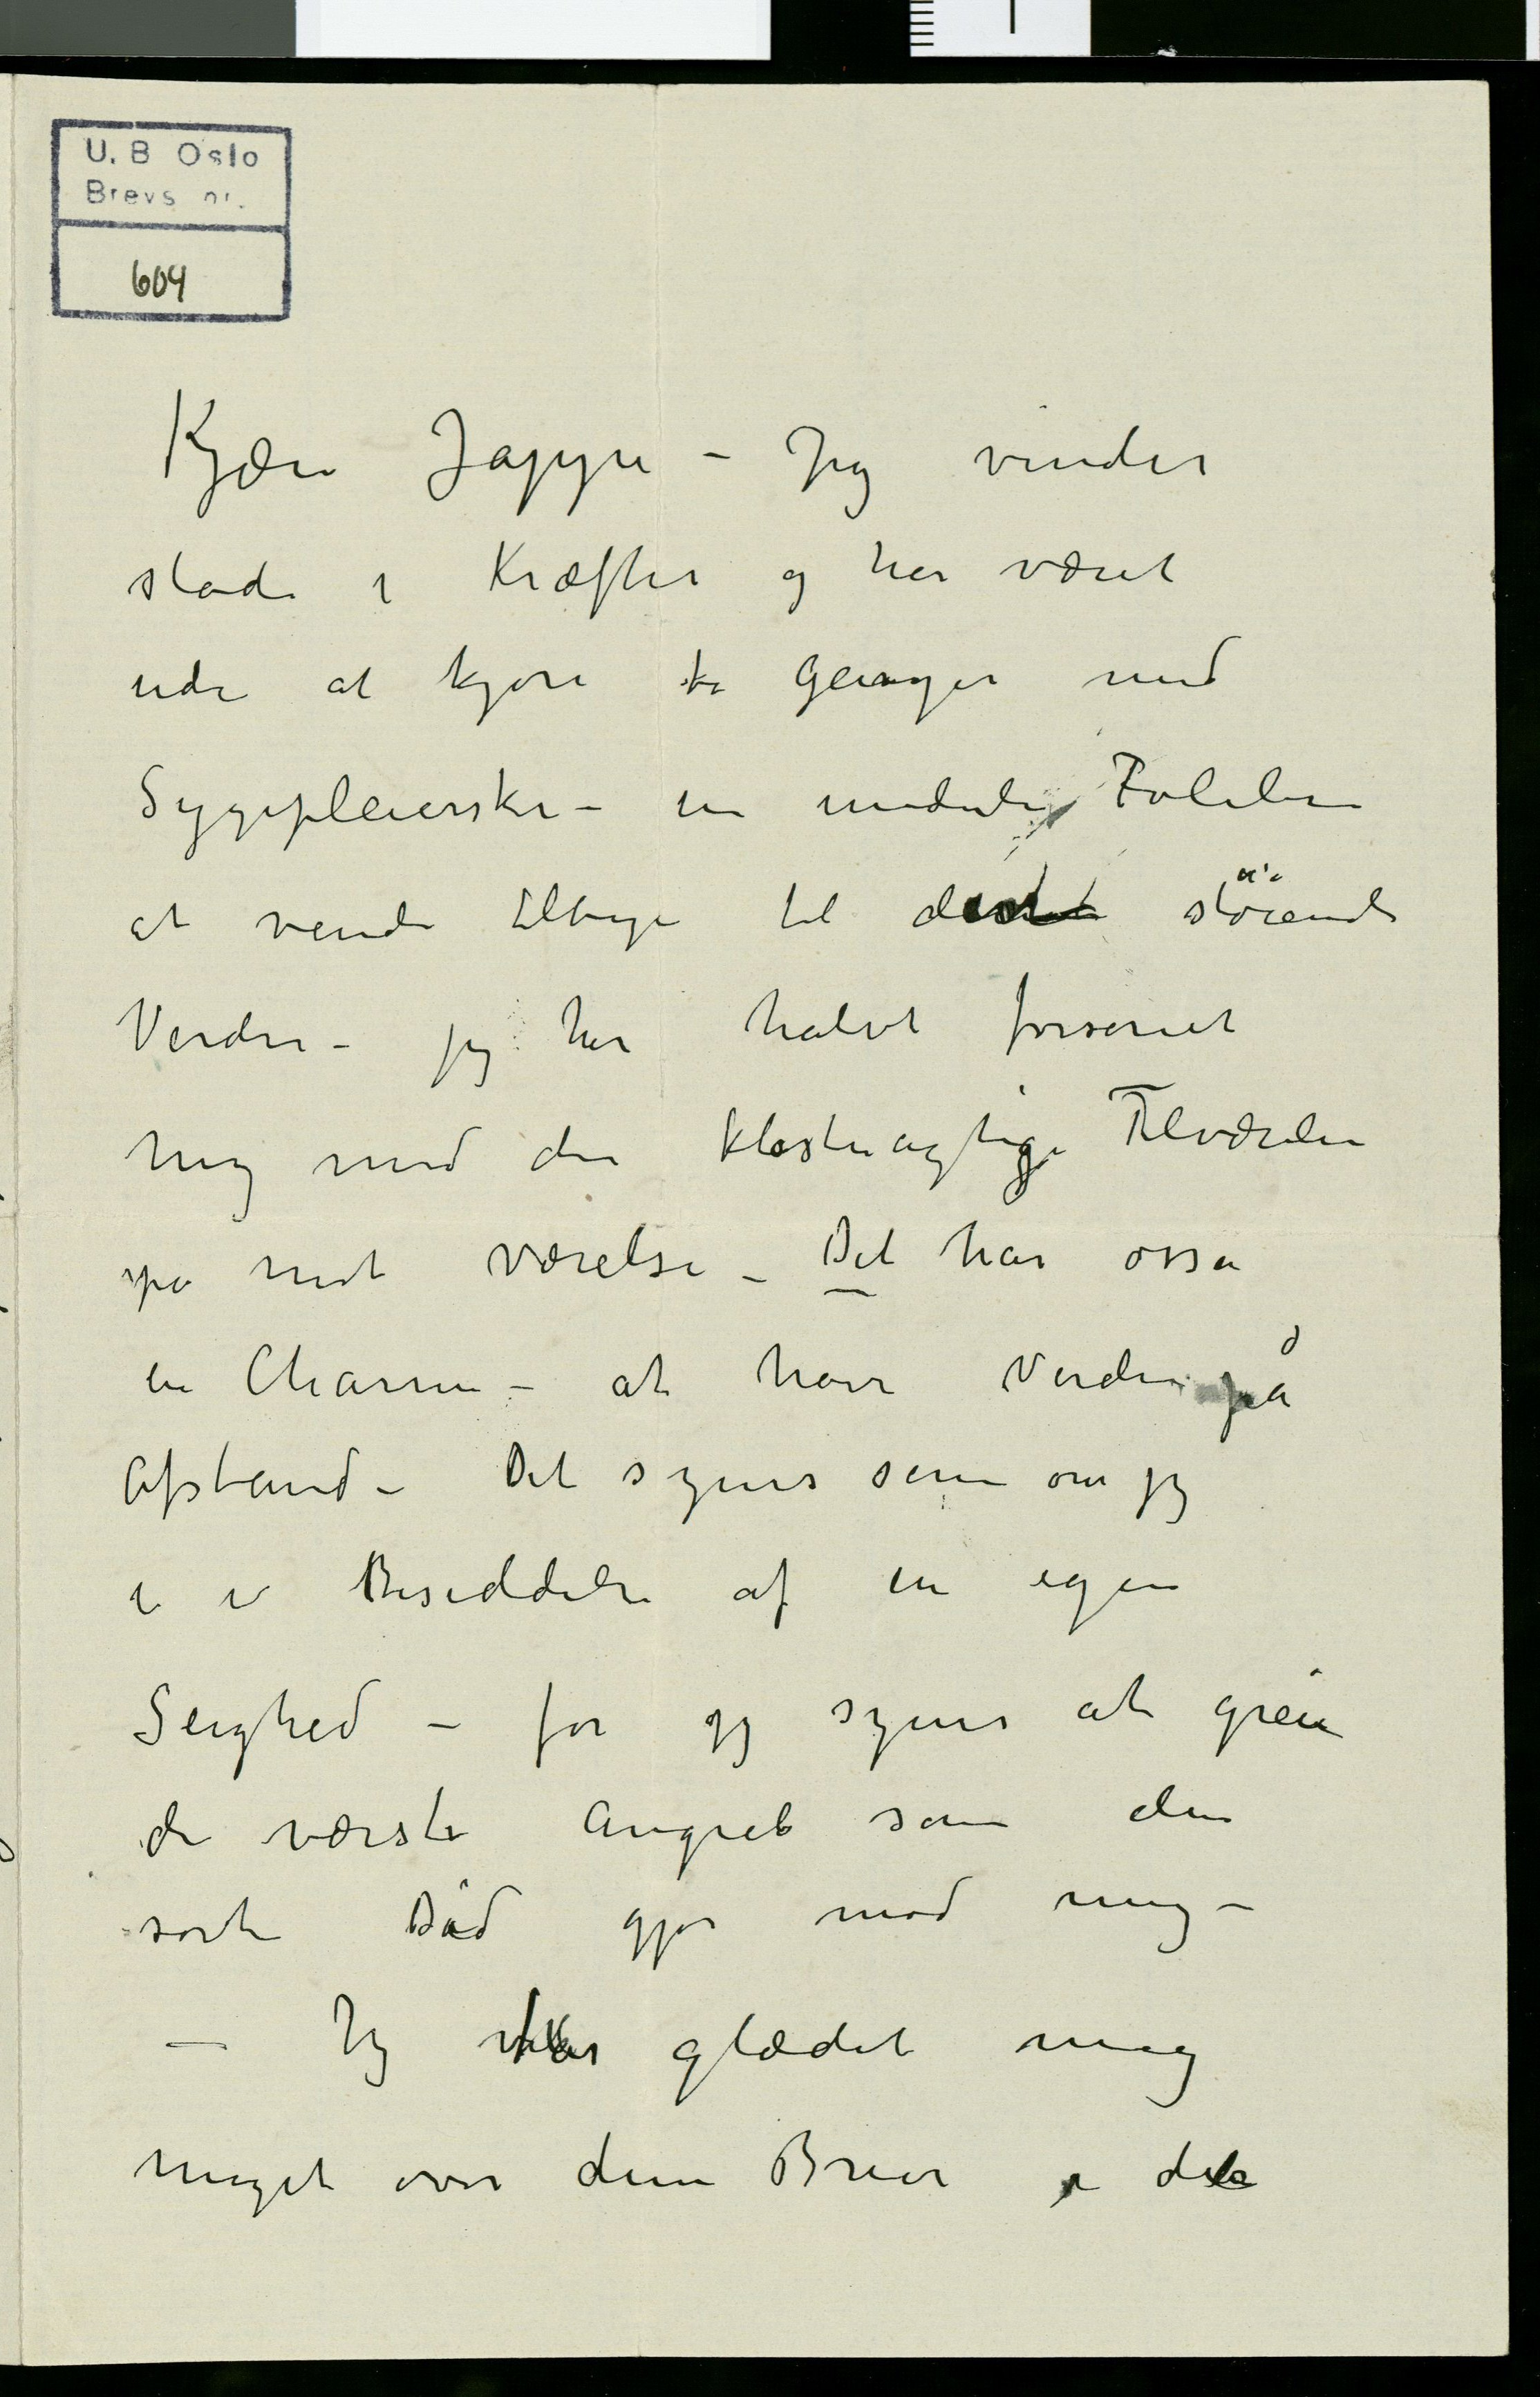 U. B Oslo
Brevs nr.
604
Kjære Jappe – Jeg vinder
stadi i Kræfter og har været
ude at kjøre to Ganger med
Sygepleierske – en underlig Følelse
at vende tilbage til den störende
Verden – jeg har halvt forsonet
mig med den klosteragtige Tilværelse
på mit værelse – Det har osså
en Charme – at have Verden på
Afstand – Det synes som om jeg
er i Besiddelse af en egen
Seighed – for jeg synes at greie
de værste Angreb som den
sorte Død gjør mod mig –
– Jeg har glædet mig
meget over dine Breve